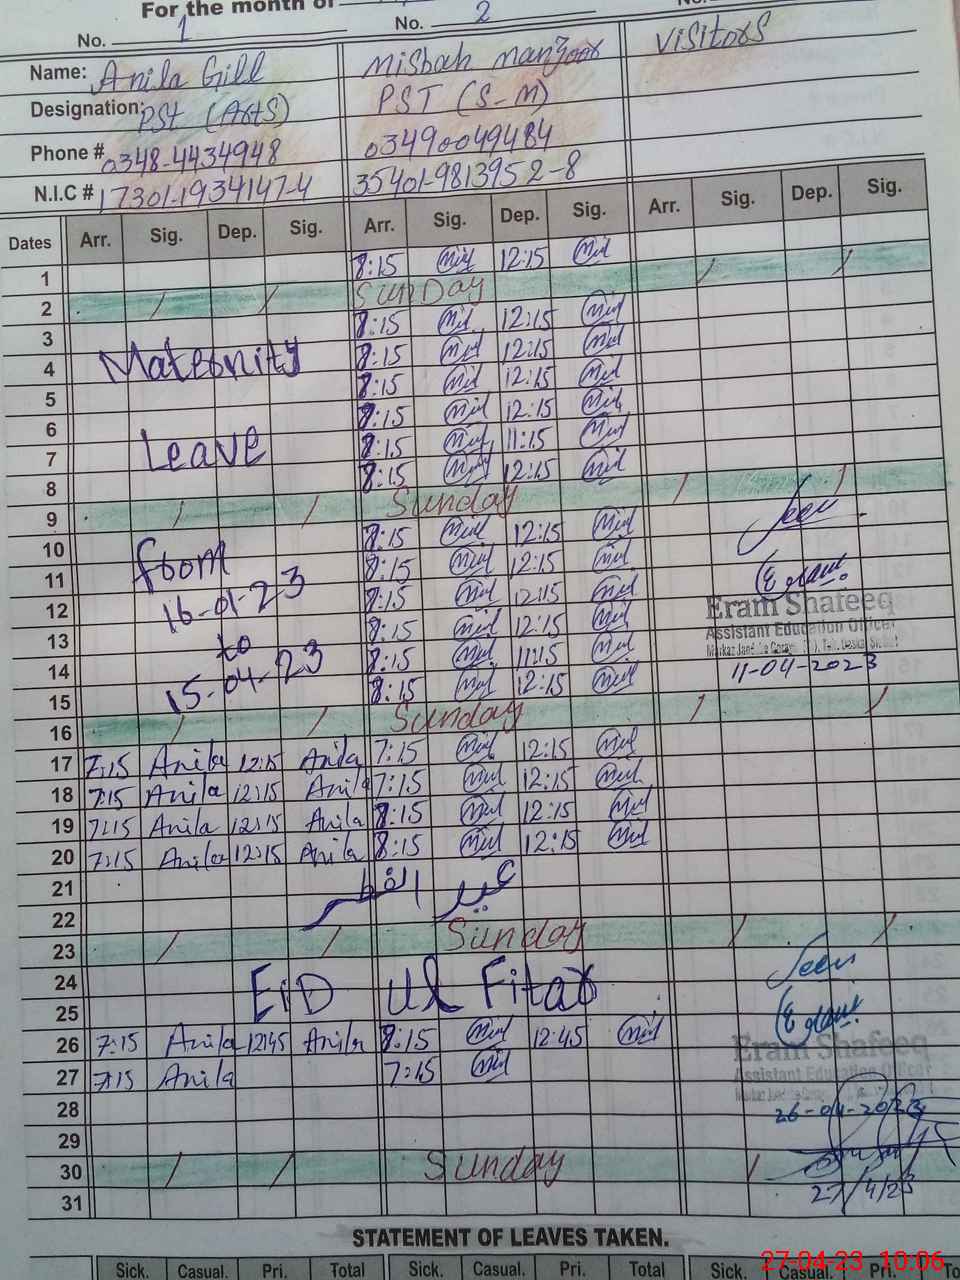 For the month of
No. 1 No. 2
Name: Anila Gill Misbah Manzoor Visitors
Designation: PSt (Arts) PST (S-M)
Phone # 0348-4434948 03490049484
N.I.C # 17301-1934147-4 35401-9813952-8
Dates Arr. Sig. Dep. Sig. Arr. Sig. Dep. Sig. Arr. Sig. Dep. Sig.
1 8:15 12:15
2 Sunday
3 8:15 12:15
4 Maternity 8:15 12:15
5 8:15 12:15
6 8:15 12:15
7 Leave 8:15 11:15
8 8:15 12:15
9 Sunday
10 8:15 12:15 Seen
11 from 8:15 12:15
12 16-01-23 8:15 12:15
Eram Shafeeq
13 to 8:15 12:15
Assistant Education Officer
14 15-04-23 8:15 11:15
11-04-2023
15 8:15 12:15
16 Sunday
17 7:15 Anila 12:15 Anila 7:15 12:15
18 7:15 Anila 12:15 Anila 7:15 12:15
19 7:15 Anila 12:15 Anila 8:15 12:15
20 7:15 Anila 12:15 Anila 8:15 12:15
21 عید الفطر
22
23 Sunday
24 EiD Ul Fitar Seen
25
26 7:15 Anila 12:45 Anila 8:15 12:45
Eram Shafeeq
27 7:15 Anila 7:15
Assistant Education Officer
28 26-04-2023
29
30 Sunday
27/4/23
31
STATEMENT OF LEAVES TAKEN.
Sick. Casual. Pri. Total Sick. Casual. Pri. Total Sick. Casual. Pri.
27-04-23 10:06